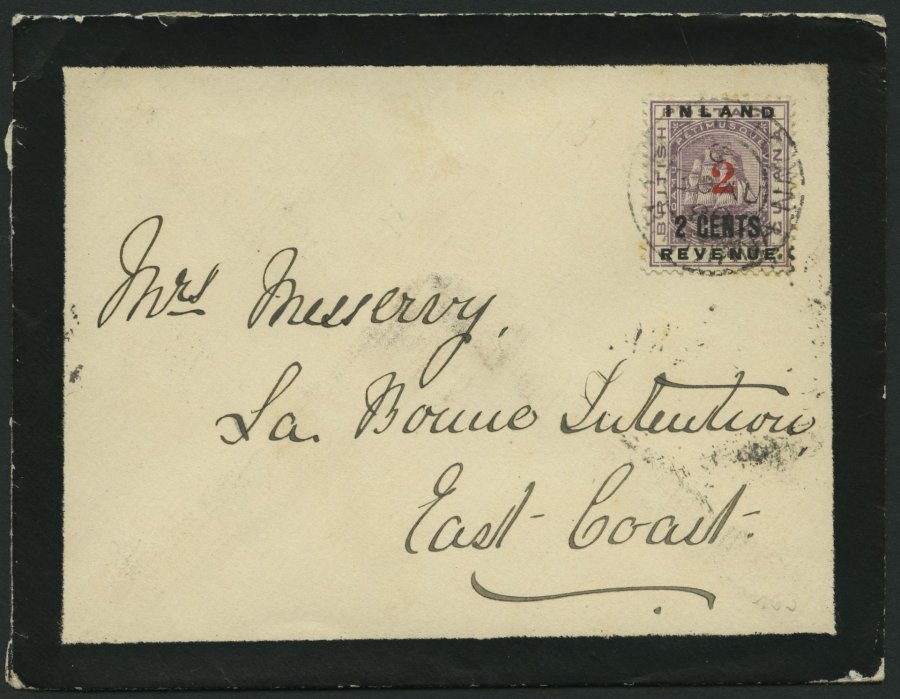 INLAND
BRITISH
GUIANA
2
2 CENTS.
REVENUE.
Mrs Messervy,
La. Bonne Intention,
East Coast.